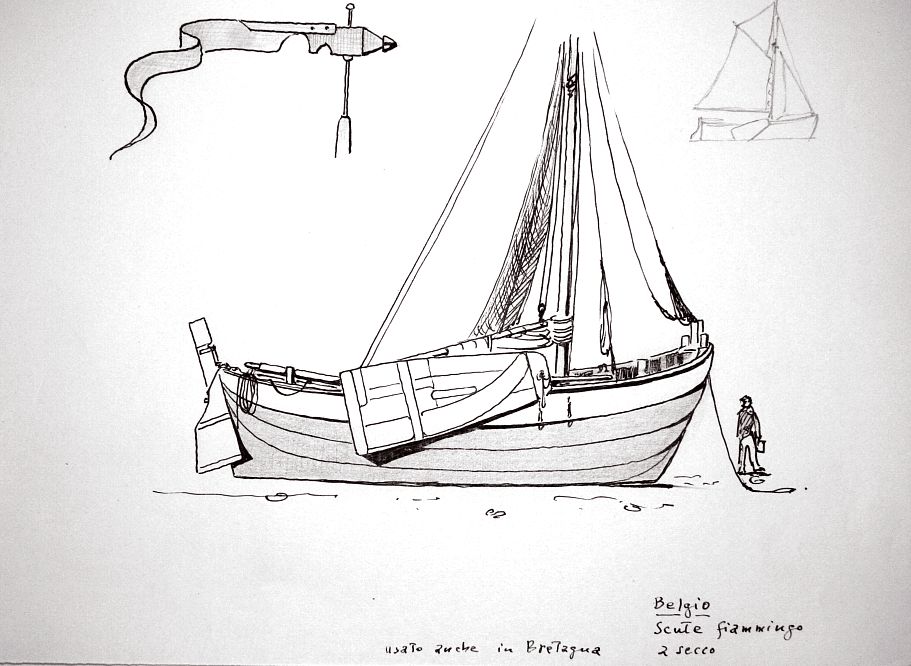 Belgio
Scute fiammingo
a secco
usato anche in Bretagna